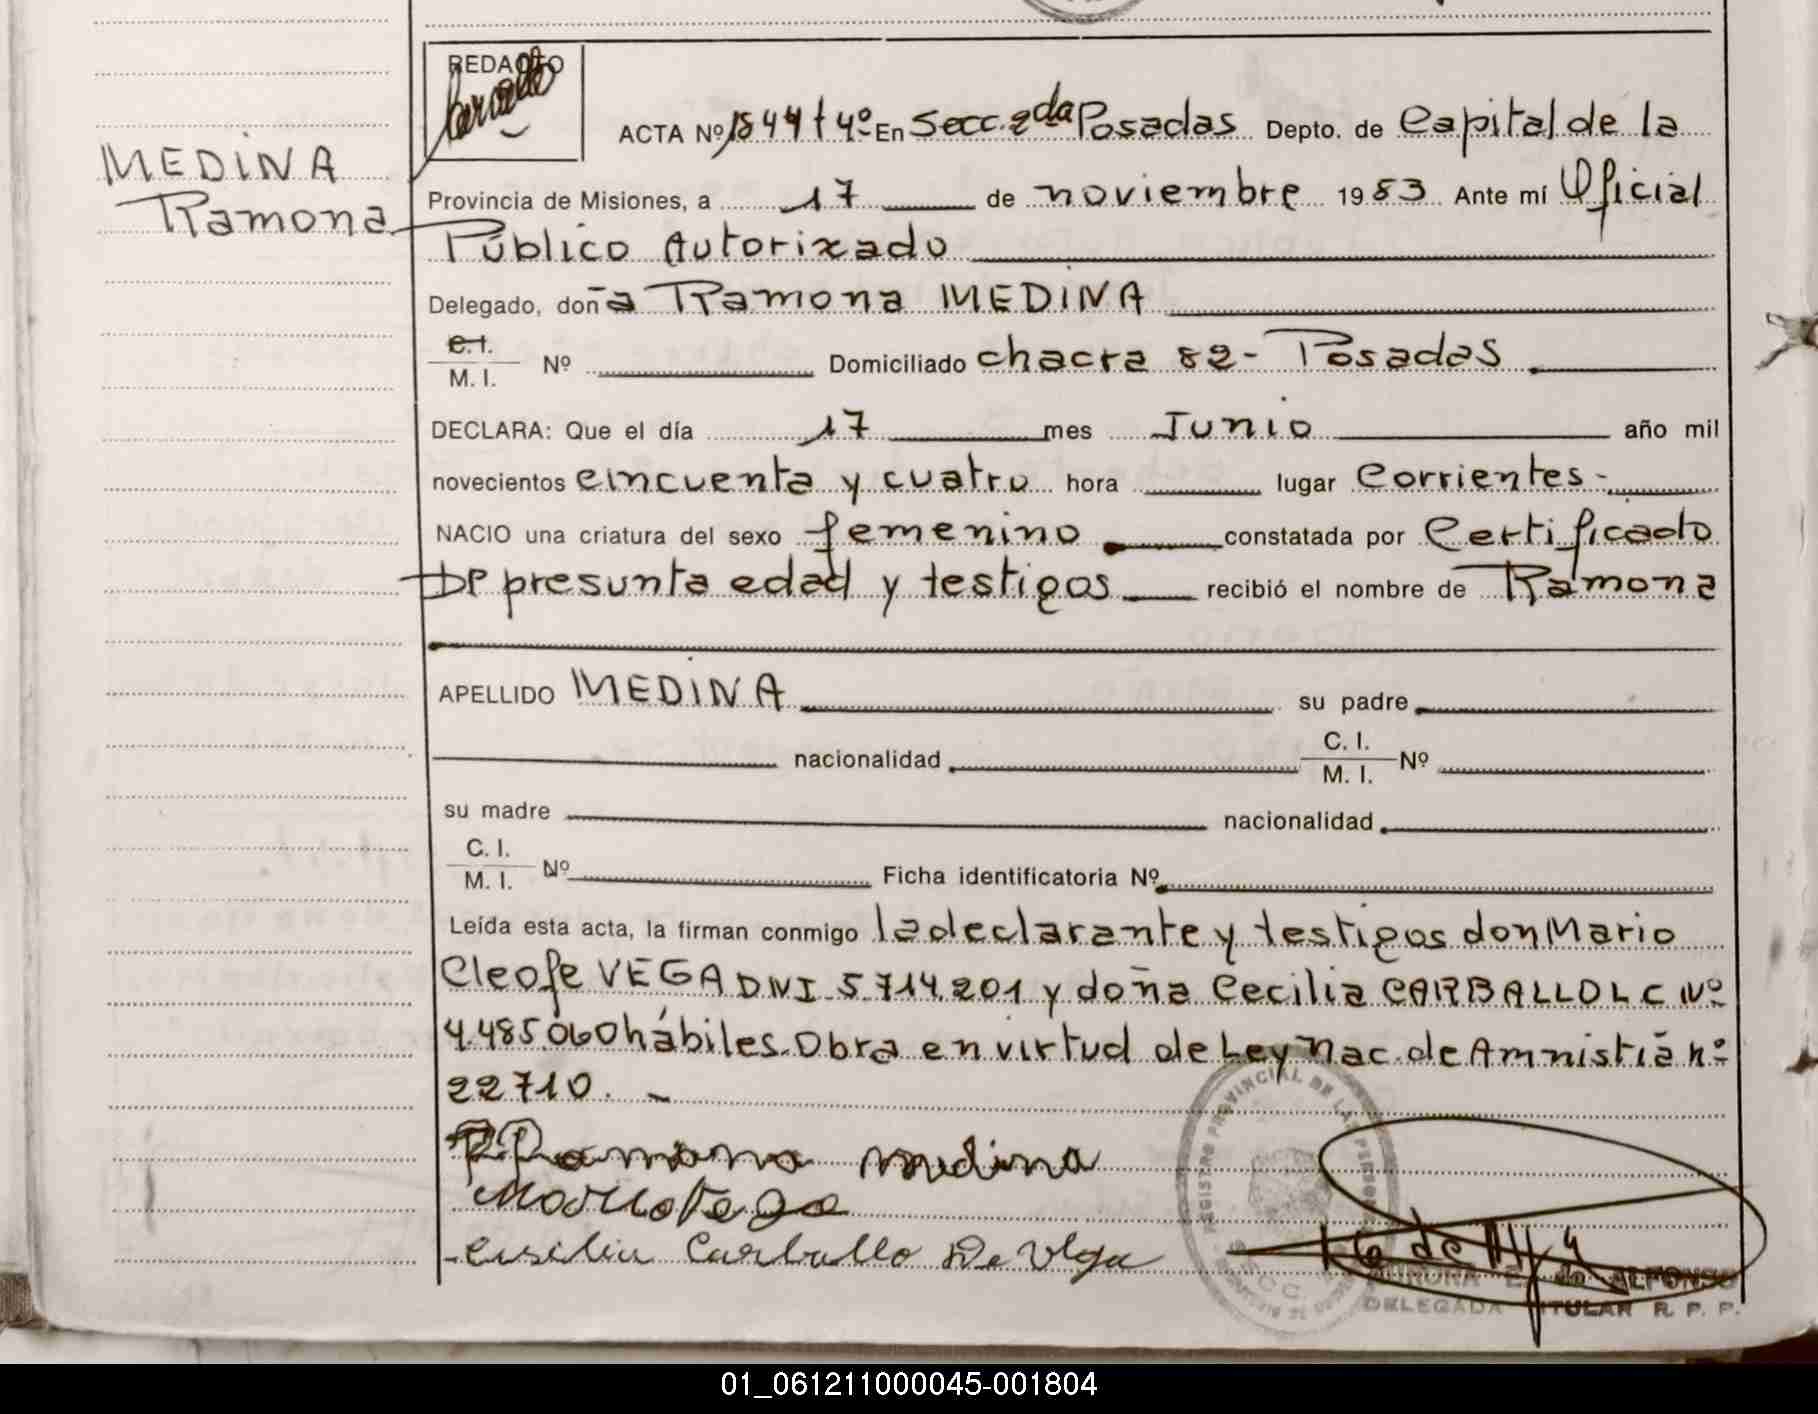 REDACTO
Carvallo
ACTA Nº 1544 t 4º En Secc. 2da Posadas Depto. de Capital de la
MEDINA
Ramona
Provincia de Misiones, a 17 de noviembre 1983 Ante mí Oficial
Público Autorizado
Delegado, doña Ramona MEDINA
C. I.
M. I. Nº Domiciliado chacra 82 - Posadas
DECLARA: Que el día 17 mes Junio año mil
novecientos cincuenta y cuatro hora lugar Corrientes -
NACIO una criatura del sexo femenino constatada por Certificado
De presunta edad y testigos recibió el nombre de Ramona
APELLIDO MEDINA su padre
nacionalidad C. I. M. I. Nº
su madre nacionalidad
C. I. M. I. Nº Ficha identificatoria Nº
Leída esta acta, la firman conmigo la declarante y testigos don Mario
Cleofe VEGA DNI 5.714.201 y doña Cecilia CARBALLO L C Nº
4.485.060 hábiles. Obra en virtud de Ley Nac. de Amnistiá nº
22710. -
Ramona medina
Mario Vega
Cesilia Carballo De Vega
REGISTRO PROVINCIAL DE LAS PERSONAS
ALFONSO
DELEGADA TITULAR R. P. P.
01_061211000045-001804